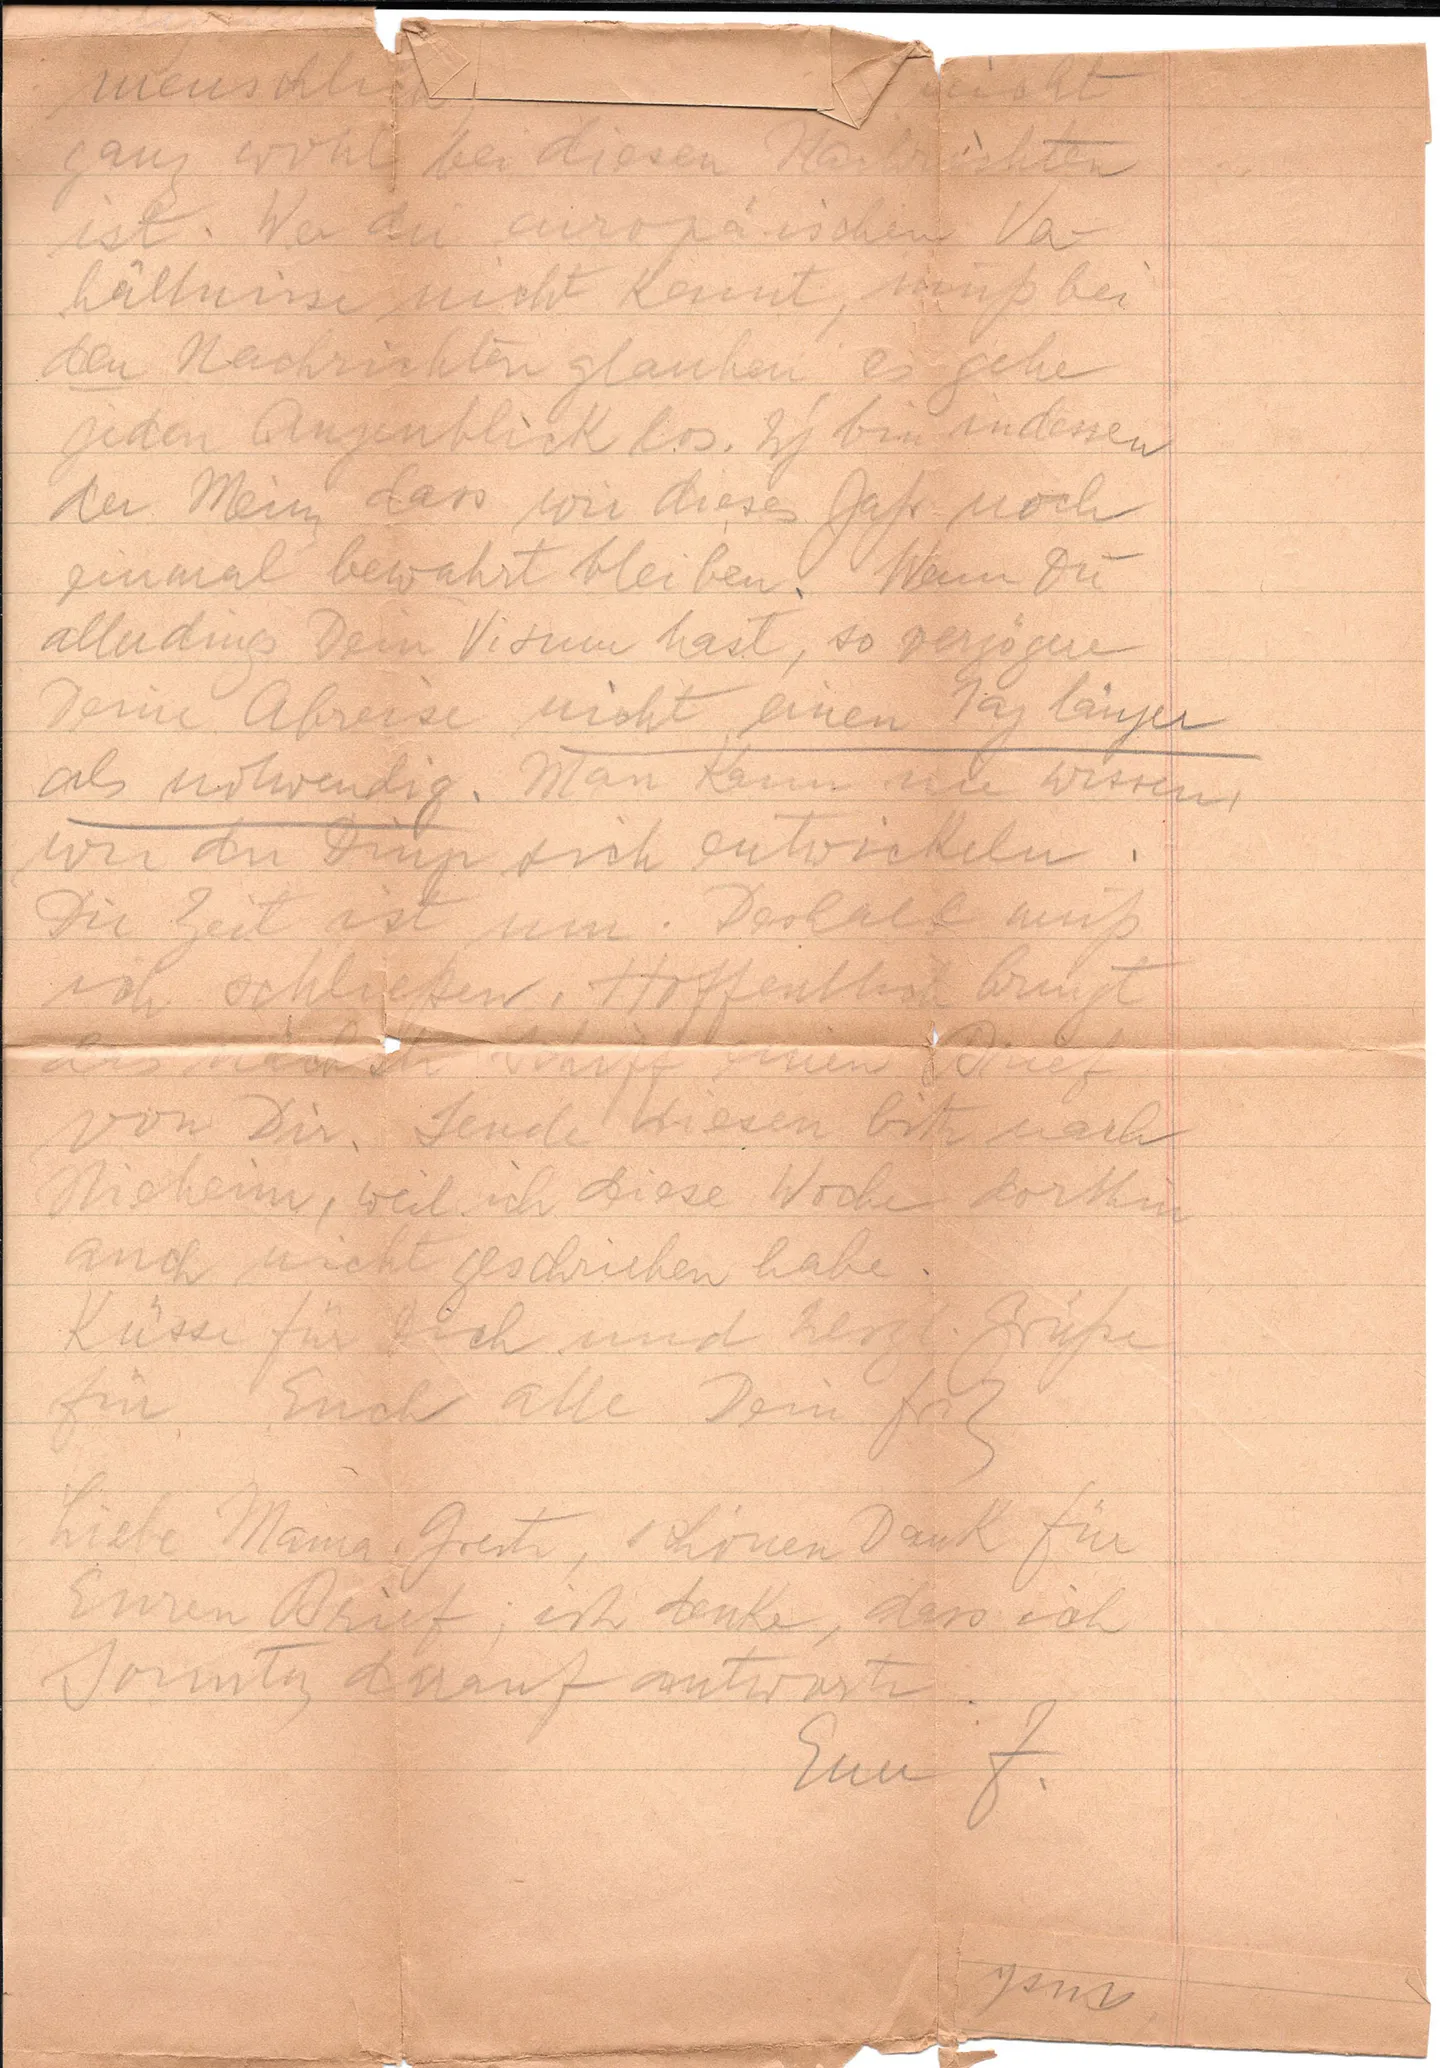 menschlich nicht
ganz wohl bei diesen Nachrichten
ist. Wer die europäischen Ver-
hältnisse nicht kennt, muß bei
den Nachrichten glauben, es gehe
jeden Augenblick los. Ich bin indessen
der Meing dass wir dieses Jahr noch
einmal bewahrt bleiben. Wenn Du
allerdings Dein Visum hast, so verzögere
Deine Abreise nicht einen Tag länger
als notwendig. Man kann nie wissen,
wie die Dinge sich entwickeln.
Die Zeit ist um. Deshalb muß
ich schließen. Hoffentlich bringt
das nächste Schiff einen Brief
von Dir. Sende diesen bitte nach
Nieheim, weil ich diese Woche dorthin
auch nicht geschrieben habe.
Küsse für Dich und herzl. Grüße
für Euch alle Dein Fritz
Liebe Mama, Grete, schönen Dank für
Euren Brief; ich denke, dass ich
Sonntag darauf antworte.
Euer F.